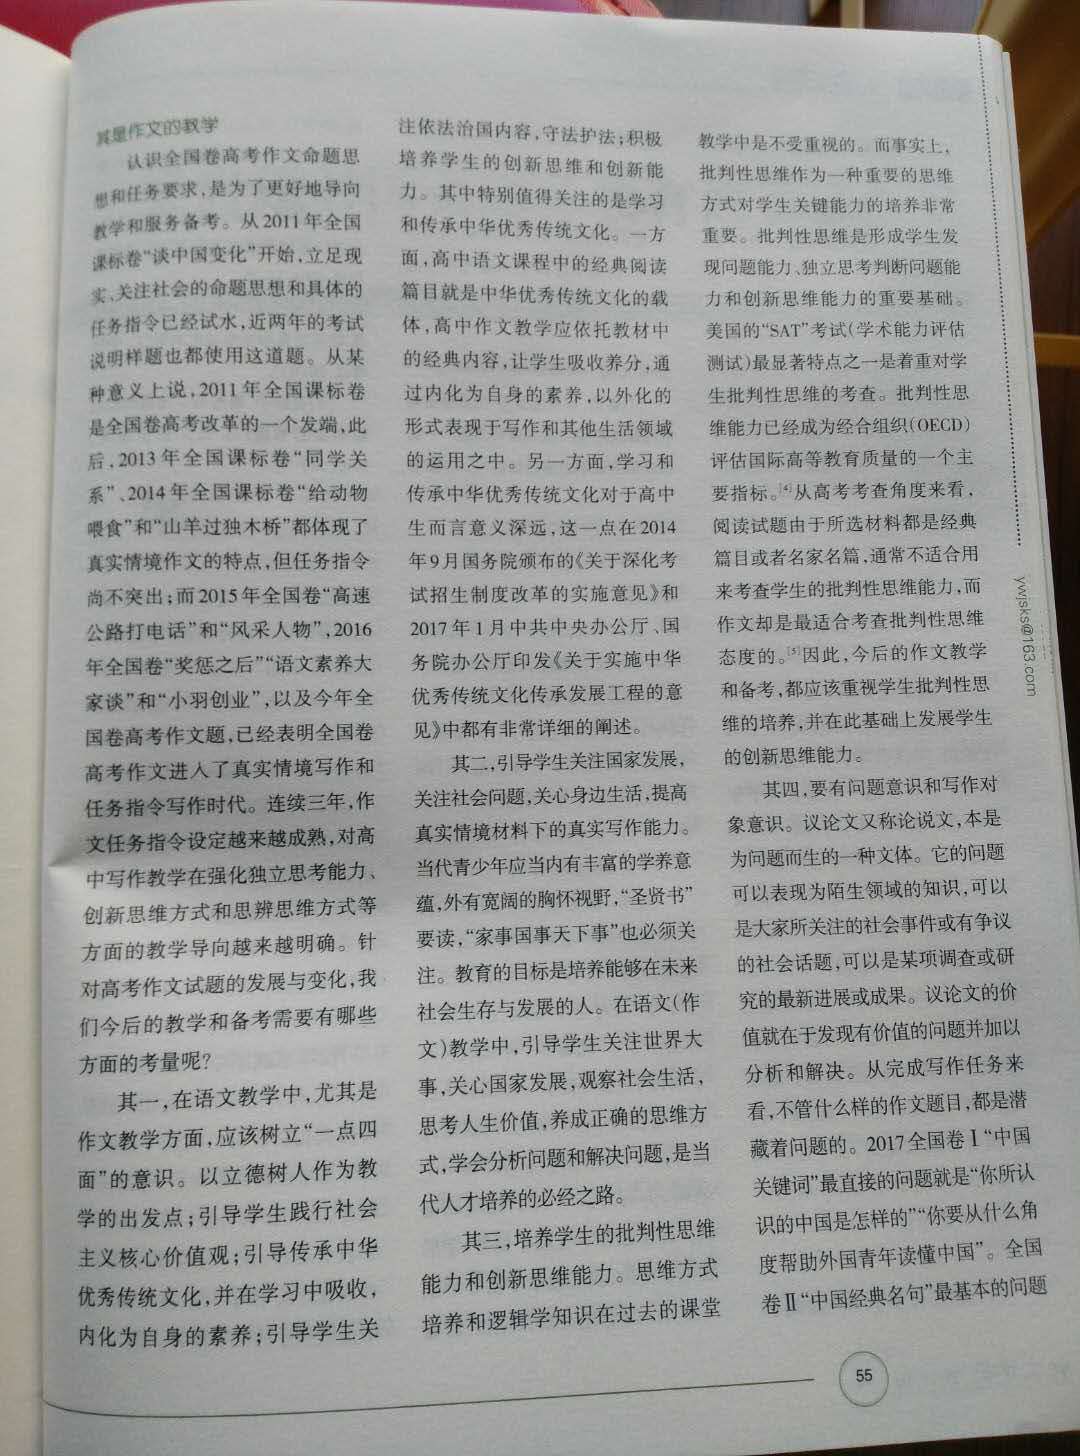 其是作文的教学
认识全国卷高考作文命题思
想和任务要求,是为了更好地导向
教学和服务备考。从2011年全国
课标卷“谈中国变化”开始,立足现
实、关注社会的命题思想和具体的
任务指令已经试水,近两年的考试
说明样题也都使用这道题。从某
种意义上说,2011年全国课标卷
是全国卷高考改革的一个发端,此
后,2013年全国课标卷“同学关
系”、2014年全国课标卷“给动物
喂食”和“山羊过独木桥”都体现了
真实情境作文的特点,但任务指令
尚不突出;而2015年全国卷“高速
公路打电话”和“风采人物”,2016
年全国卷“奖惩之后”“语文素养大
家谈”和“小羽创业”,以及今年全
国卷高考作文题,已经表明全国卷
高考作文进入了真实情境写作和
任务指令写作时代。连续三年,作
文任务指令设定越来越成熟,对高
中写作教学在强化独立思考能力、
创新思维方式和思辨思维方式等
方面的教学导向越来越明确。针
对高考作文试题的发展与变化,我
们今后的教学和备考需要有哪些
方面的考量呢?
其一,在语文教学中,尤其是
作文教学方面,应该树立“一点四
面”的意识。以立德树人作为教
学的出发点;引导学生践行社会
主义核心价值观;引导传承中华
优秀传统文化,并在学习中吸收,
内化为自身的素养;引导学生关
注依法治国内容,守法护法;积极
培养学生的创新思维和创新能
力。其中特别值得关注的是学习
和传承中华优秀传统文化。一方
面,高中语文课程中的经典阅读
篇目就是中华优秀传统文化的载
体,高中作文教学应依托教材中
的经典内容,让学生吸收养分,通
过内化为自身的素养,以外化的
形式表现于写作和其他生活领域
的运用之中。另一方面,学习和
传承中华优秀传统文化对于高中
生而言意义深远,这一点在2014
年9月国务院颁布的《关于深化考
试招生制度改革的实施意见》和
2017年1月中共中央办公厅、国
务院办公厅印发《关于实施中华
优秀传统文化传承发展工程的意
见》中都有非常详细的阐述。
其二,引导学生关注国家发展,
关注社会问题,关心身边生活,提高
真实情境材料下的真实写作能力。
当代青少年应当内有丰富的学养意
蕴,外有宽阔的胸怀视野,“圣贤书”
要读,“家事国事天下事”也必须关
注。教育的目标是培养能够在未来
社会生存与发展的人。在语文(作
文)教学中,引导学生关注世界大
事,关心国家发展,观察社会生活,
思考人生价值,养成正确的思维方
式,学会分析问题和解决问题,是当
代人才培养的必经之路。
其三,培养学生的批判性思维
能力和创新思维能力。思维方式
培养和逻辑学知识在过去的课堂
教学中是不受重视的。而事实上,
批判性思维作为一种重要的思维
方式对学生关键能力的培养非常
重要。批判性思维是形成学生发
现问题能力、独立思考判断问题能
力和创新思维能力的重要基础。
美国的“SAT”考试(学术能力评估
测试)最显著特点之一是着重对学
生批判性思维的考查。批判性思
维能力已经成为经合组织(OECD)
评估国际高等教育质量的一个主
要指标。[4]从高考考查角度来看,
阅读试题由于所选材料都是经典
篇目或者名家名篇,通常不适合用
来考查学生的批判性思维能力,而
作文却是最适合考查批判性思维
态度的。[5]因此,今后的作文教学
和备考,都应该重视学生批判性思
维的培养,并在此基础上发展学生
的创新思维能力。
其四,要有问题意识和写作对
象意识。议论文又称论说文,本是
为问题而生的一种文体。它的问题
可以表现为陌生领域的知识,可以
是大家所关注的社会事件或有争议
的社会话题,可以是某项调查或研
究的最新进展或成果。议论文的价
值就在于发现有价值的问题并加以
分析和解决。从完成写作任务来
看,不管什么样的作文题目,都是潜
藏着问题的。2017全国卷Ⅰ“中国
关键词”最直接的问题就是“你所认
识的中国是怎样的”“你要从什么角
度帮助外国青年读懂中国”。全国
卷Ⅱ“中国经典名句”最基本的问题
ywjsks@163.com
55